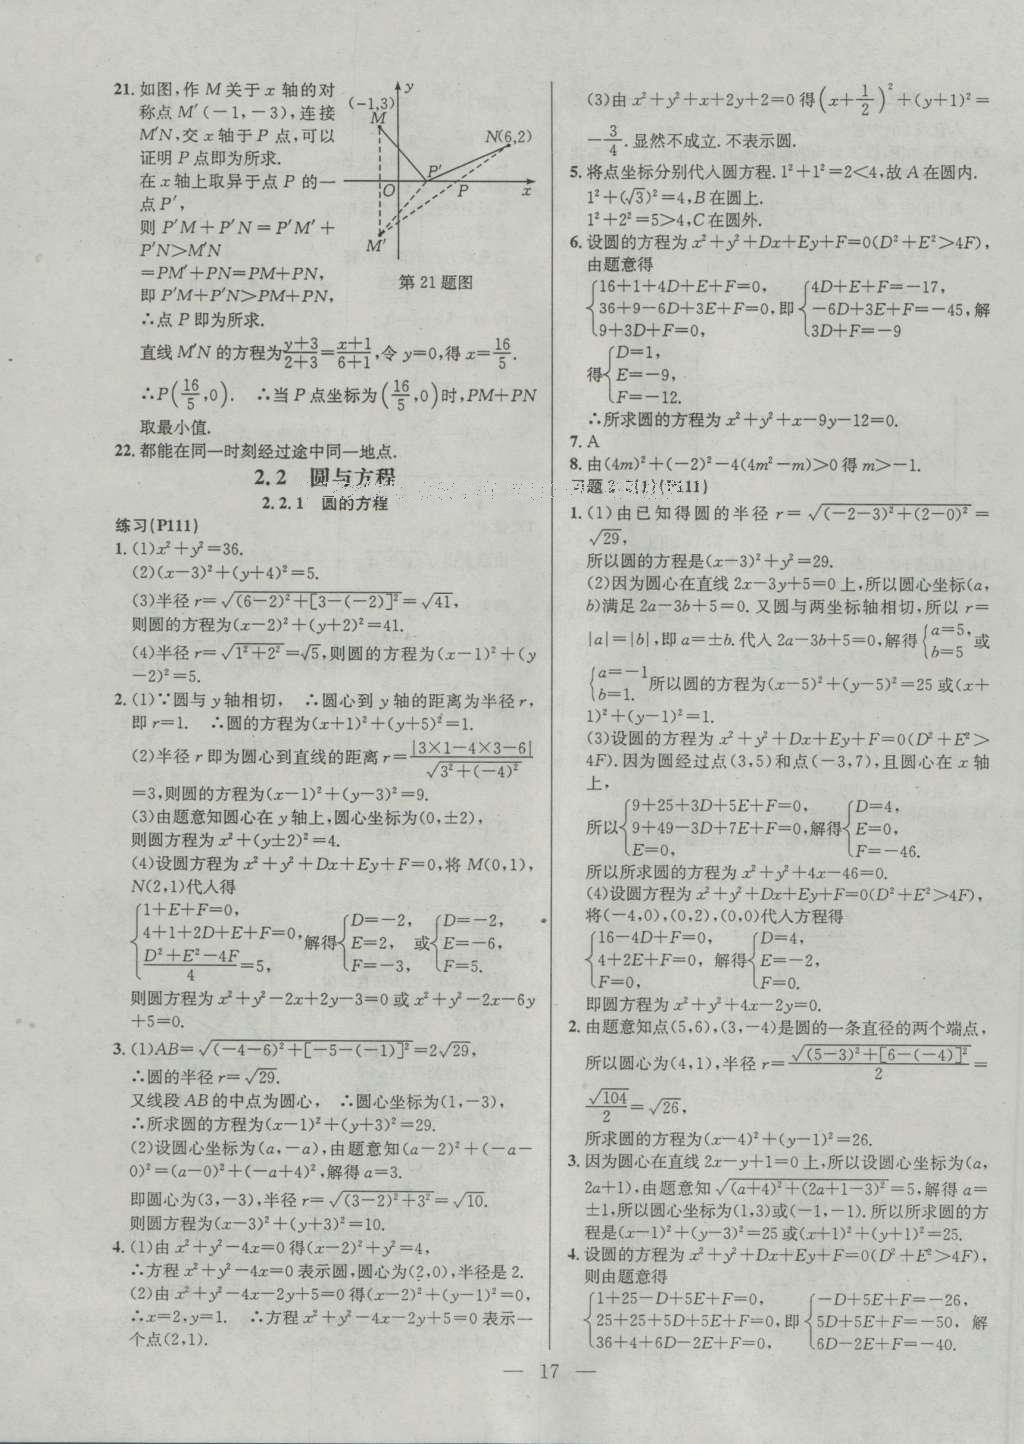 21. 如图,作 M 关于 x 轴的对
称点 M′(-1,-3),连接
M′N,交 x 轴于 P 点,可以
证明 P 点即为所求.
在 x 轴上取异于点 P 的一
点 P′,
则 P′M+P′N=P′M′+
P′N>M′N
=PM′+PN=PM+PN,
即 P′M+P′N>PM+PN,
∴点 P 即为所求.
y
(-1,3)
M
N(6,2)
P′
O
P
x
M′
第 21 题图
直线 M′N 的方程为\frac{y+3}{2+3}=\frac{x+1}{6+1},令 y=0,得 x=\frac{16}{5}.
∴P(\frac{16}{5},0). ∴当 P 点坐标为(\frac{16}{5},0)时,PM+PN
取最小值.
22. 都能在同一时刻经过途中同一地点.
2.2 圆与方程
2.2.1 圆的方程
练习(P111)
1. (1)x²+y²=36.
(2)(x-3)²+(y+4)²=5.
(3)半径 r=√((6-2)²+[3-(-2)]²)=√41,
则圆的方程为(x-2)²+(y+2)²=41.
(4)半径 r=√(1²+2²)=√5,则圆的方程为(x-1)²+(y
-2)²=5.
2. (1)∵圆与 y 轴相切, ∴圆心到 y 轴的距离为半径 r,
即 r=1. ∴圆的方程为(x+1)²+(y+5)²=1.
(2)半径 r 即为圆心到直线的距离 r=\frac{|3×1-4×3-6|}{√(3²+(-4)²)}
=3,则圆的方程为(x-1)²+(y-3)²=9.
(3)由题意知圆心在 y 轴上,圆心坐标为(0,±2),
则圆方程为 x²+(y±2)²=4.
(4)设圆方程为 x²+y²+Dx+Ey+F=0,将 M(0,1),
N(2,1)代人得
{1+E+F=0,
4+1+2D+E+F=0,
\frac{D²+E²-4F}{4}=5,
解得{D=-2, E=2, F=-3, 或{D=-2, E=-6, F=5.
则圆方程为 x²+y²-2x+2y-3=0 或 x²+y²-2x-6y
+5=0.
3. (1)AB=√((-4-6)²+[-5-(-1)]²)=2√29,
∴圆的半径 r=√29.
又线段 AB 的中点为圆心, ∴圆心坐标为(1,-3),
∴所求圆的方程为(x-1)²+(y+3)²=29.
(2)设圆心坐标为(a,-a),由题意知(a-2)²+(-a-
0)²=(a-0)²+(-a+4)²,解得 a=3.
即圆心为(3,-3),半径 r=√((3-2)²+3²)=√10.
则圆方程为(x-3)²+(y+3)²=10.
4. (1)由 x²+y²-4x=0 得(x-2)²+y²=4,
∴方程 x²+y²-4x=0 表示圆,圆心为(2,0),半径是 2.
(2)由 x²+y²-4x-2y+5=0 得(x-2)²+(y-1)²=0,
∴x=2,y=1. ∴方程 x²+y²-4x-2y+5=0 表示一
个点(2,1).
(3)由 x²+y²+x+2y+2=0 得(x+\frac{1}{2})²+(y+1)²=
-\frac{3}{4}.显然不成立.不表示圆.
5. 将点坐标分别代人圆方程.1²+1²=2<4,故 A 在圆内.
1²+(√3)²=4,B 在圆上.
1²+2²=5>4,C 在圆外.
6. 设圆的方程为 x²+y²+Dx+Ey+F=0(D²+E²>4F),
由题意得
{16+1+4D+E+F=0, {4D+E+F=-17,
36+9-6D+3E+F=0,即 -6D+3E+F=-45,解
9+3D+F=0, 3D+F=-9
得{D=1,
E=-9,
F=-12.
∴所求圆的方程为 x²+y²+x-9y-12=0.
7. A
8. 由(4m)²+(-2)²-4(4m²-m)>0 得 m>-1.
习题 2.2(1)(P111)
1. (1)由已知得圆的半径 r=√((-2-3)²+(2-0)²)=
√29,
所以圆的方程是(x-3)²+y²=29.
(2)因为圆心在直线 2x-3y+5=0 上,所以圆心坐标(a,
b)满足 2a-3b+5=0. 又圆与两坐标轴相切,所以 r=
|a|=|b|,即 a=±b.代人 2a-3b+5=0,解得{a=5, b=5 或
{a=-1 b=1. 所以圆的方程为(x-5)²+(y-5)²=25 或(x+
1)²+(y-1)²=1.
(3)设圆的方程为 x²+y²+Dx+Ey+F=0(D²+E²>
4F).因为圆经过点(3,5)和点(-3,7),且圆心在 x 轴
上,
{9+25+3D+5E+F=0, {D=4,
所以 9+49-3D+7E+F=0,解得 E=0,
E=0, F=-46.
所以所求圆的方程为 x²+y²+4x-46=0.
(4)设圆方程为 x²+y²+Dx+Ey+F=0(D²+E²>4F),
将(-4,0),(0,2),(0,0)代人方程得
{16-4D+F=0, {D=4,
4+2E+F=0, 解得 E=-2,
F=0, F=0.
即圆方程为 x²+y²+4x-2y=0.
2. 由题意知点(5,6),(3,-4)是圆的一条直径的两个端点,
所以圆心为(4,1),半径 r=\frac{√((5-3)²+[6-(-4)]²)}{2}=
\frac{√104}{2}=√26,
所求圆的方程为(x-4)²+(y-1)²=26.
3. 因为圆心在直线 2x-y+1=0 上,所以设圆心坐标为(a,
2a+1),由题意知√((a+4)²+(2a+1-3)²)=5,解得 a=
±1,所以圆心坐标为(1,3)或(-1,-1). 所以所求圆的方
程是(x-1)²+(y-3)²=25 或(x+1)²+(y+1)²=25.
4. 设圆的方程为 x²+y²+Dx+Ey+F=0(D²+E²>4F),
则由题意得
{1+25-D+5E+F=0, {-D+5E+F=-26,
25+25+5D+5E+F=0,即 5D+5E+F=-50, 解
36+4+6D-2E+F=0, 6D-2E+F=-40.
— 17 —